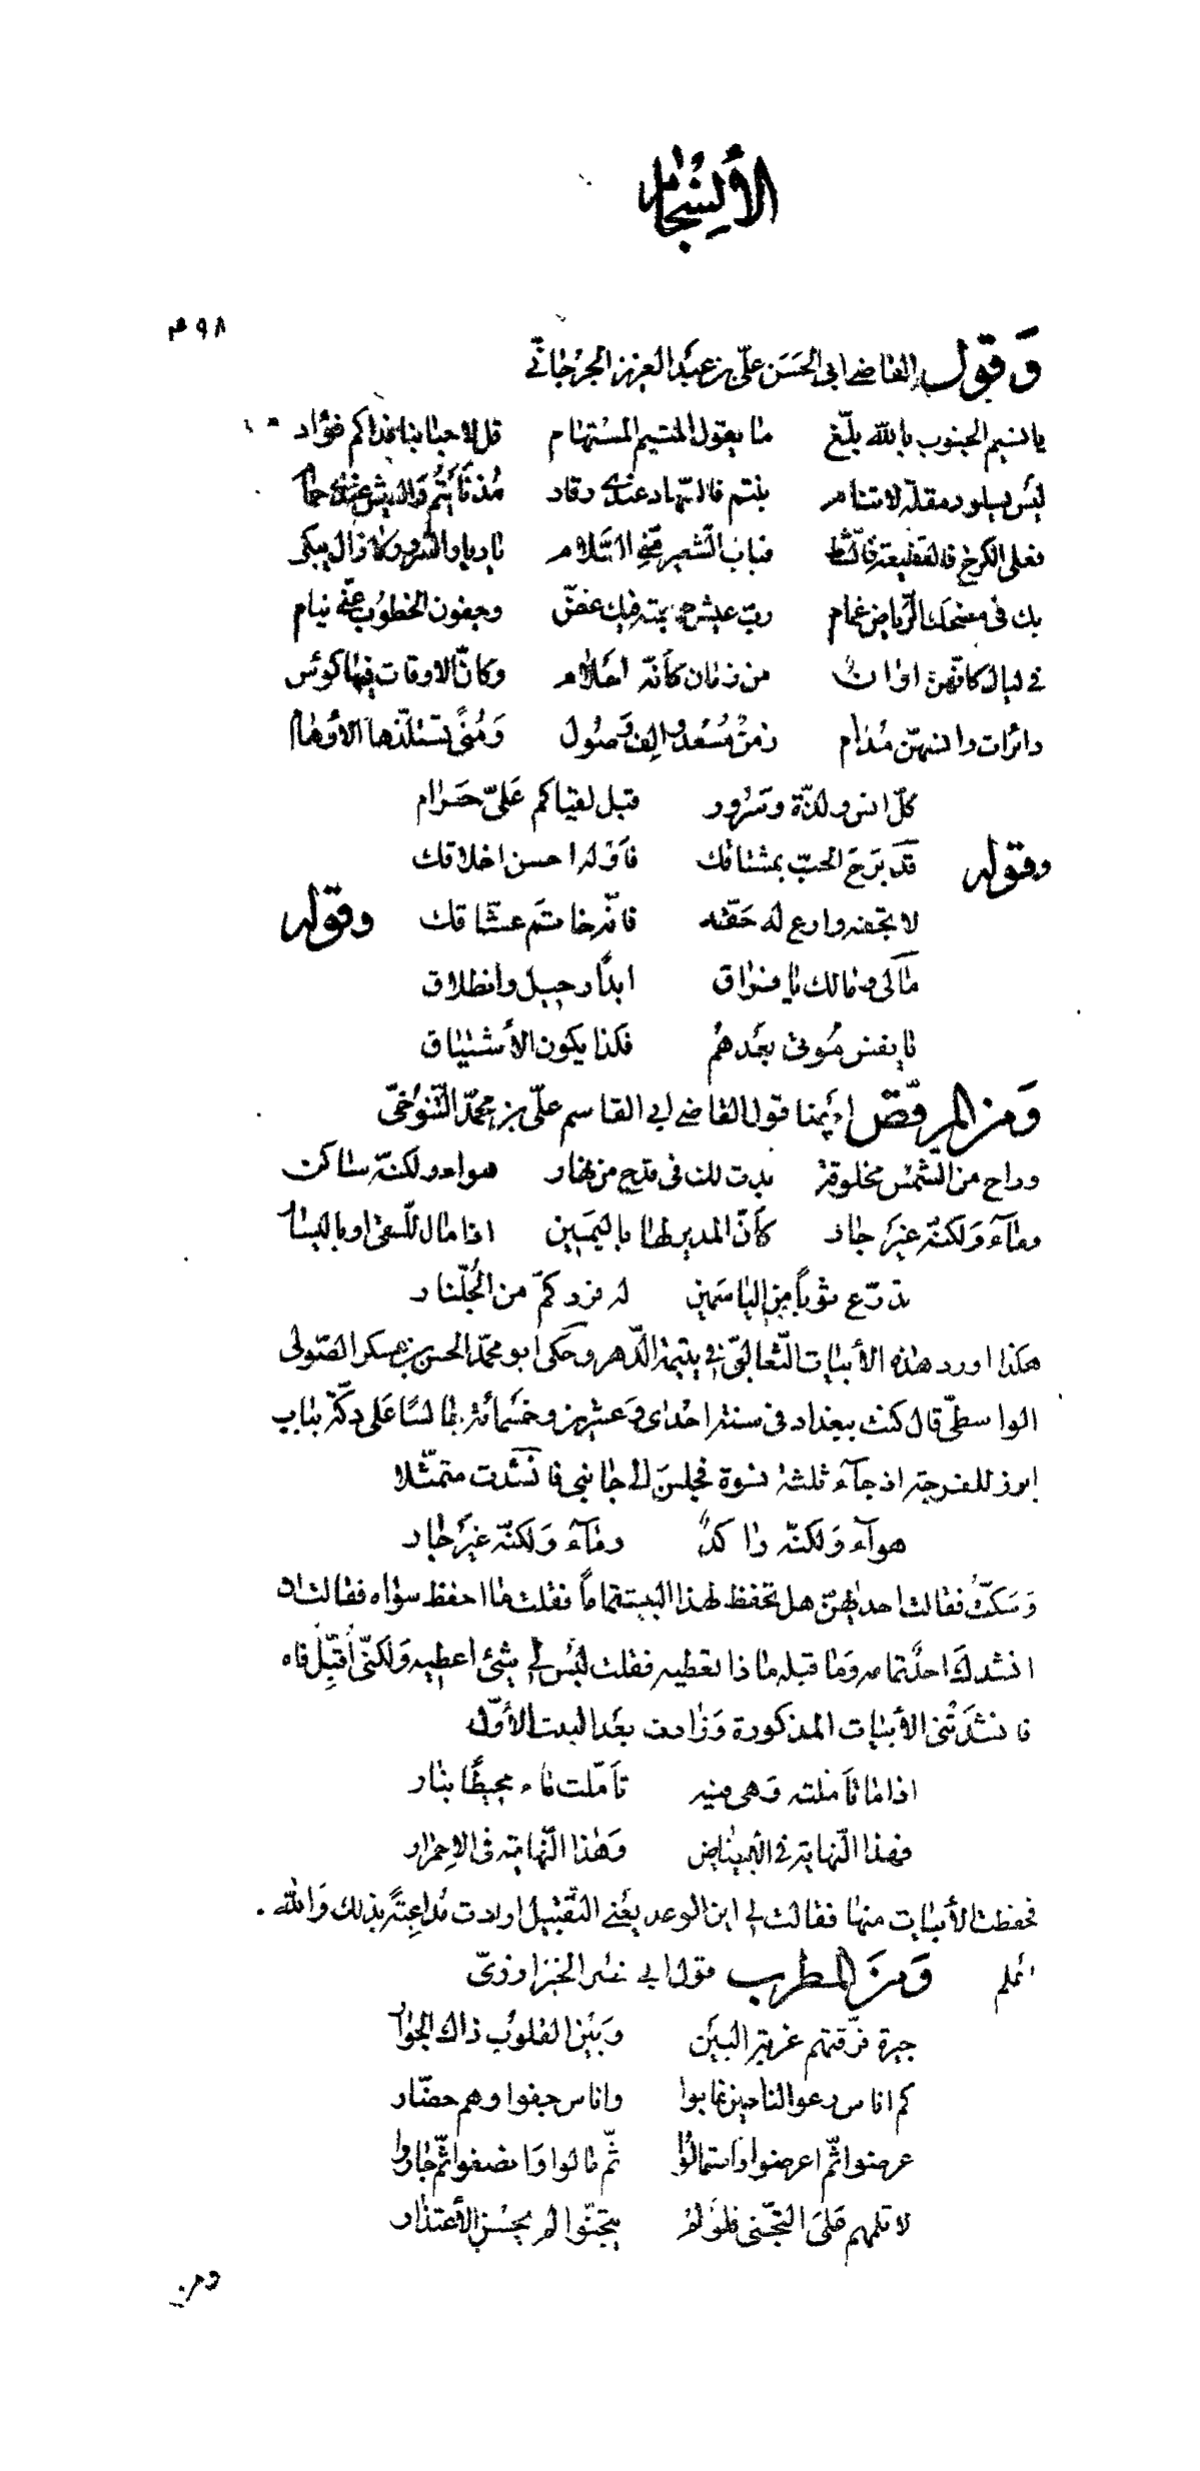 الأنسجام
٤٩٨
وَقول القاضي ابي الحَسَن عليّ بن عبَد العزيز الجرْجانيّ
يا نسيم الجنوب بالله بلّغ ما يقول المتيم المسْتهام قل لاحبابنا فداكم فؤاد
ليْس يسلو ومقلة لا تنام بنتم فالسّهاد عندي رقاد مُذ نَأيْتُم وَالعيش عندي حمام
فعلى الكرخ فالقطيعة فالشّط فباب الشّعير منّي السّلام يا ديار السّرور لا زال يبكي
بك في مضحك الرّياض غمام ربّ عيش صحبته فيك غضّ وجفون الخطوُب عنّي نيام
في ليال كانّهنّ امان من زمان كأنّه احلام وكانّ الاوقات فيها كوئس
دائرات وانسهنّ مُدام زمنٌ مُسْعدٌ والِفٌ وَصُول وَمُنًى تستلذّها الأوهام
كلّ انس ولذّة وسَرُور قبل لقياكم عَليّ حَرام
وقوله قَد بَرَحَ الحبّ بمشتاقك فأوله احسن اخلاقك
لا تجفه وارع له حَقّه فانّه خاتم عشّاقك وقوله
مَالي ومالك يا فراق ابدًا رحيل وانطلاق
يا نفس مُوتي بعَدهمْ فكذا يكون الأشتياق
وَمن المرقّص ايضا قول القاضي ابي القاسم عليّ بن محمّد التّنوُخيّ
وراح من الشّمس مخلوقة بدت لك في قدح من نهار هواء ولكنّه ساكن
وماَء وَلكنّه غيرَ جار كأنّ المدير لها باليمَين اذا مال للسّقي او باليسار
تدرّع ثوباً من الياسَمين له فرد كمّ من الجُلّنار
هكذا اورد هذه الأبيات الثّعالبيّ في يتيمة الدّهر وحَكى ابو محمّد الحسن بن عسكر الصّوفي
الواسطيّ قال كنت ببغداد في سنة احْدى وَعشرين وخمَسمائة جالسًا عَلى دكّة بباب
ابرز للفرجة اذ جآء ثلثة نسْوة فجلسن الى جانبي فانَشَدت متمثّلا
هوآء وَلكنّه راكدٌ ومَاء وَلكنّه غيَر جار
وَسَكتُّ فقالت احداهنّ هل تحفظ لهذا البيت تماماً فقلت ما احفظ سوٰاه فقالت ان
انشدك احدٌ تمامه وَما قبله ماذا تعطيه فقلت ليْس لي شئ اعطيه وَلكنّي أقبّل فاه
فانشدَتْني الأبيات المذكورة وَزادت بعَد البيت الأوّل
اذا ما تأمّلته وَهي فيه تأمّلت ماء محيطًا بنار
فهذا النّهاية في البيَاض وَهٰذا النّهاية في الاِحمرار
فحفظت الأبيات منها فقالت لي اين الوعد يعَني التّقبيل ارادت مُداعبةً بذلك وَالله .
اعْلم وَمنَ المطرب قول ابي نصْر الخبزارزيّ
جيرة فرّقتهم غربة البَين وَبيْن القلوُب ذاك الجوار
كم اناس رعوا لنا حين غابوا واناس جفوا وهم حضّار
عرضوا ثمّ اعرضوا واستمالوُا ثمّ مالوا وَانصفوا ثمّ جاروا
لا تلمهم عَلىَ التّجنّي فلوْ لمْ يتجنّوا لم يحسْن الأعتذار
ومن